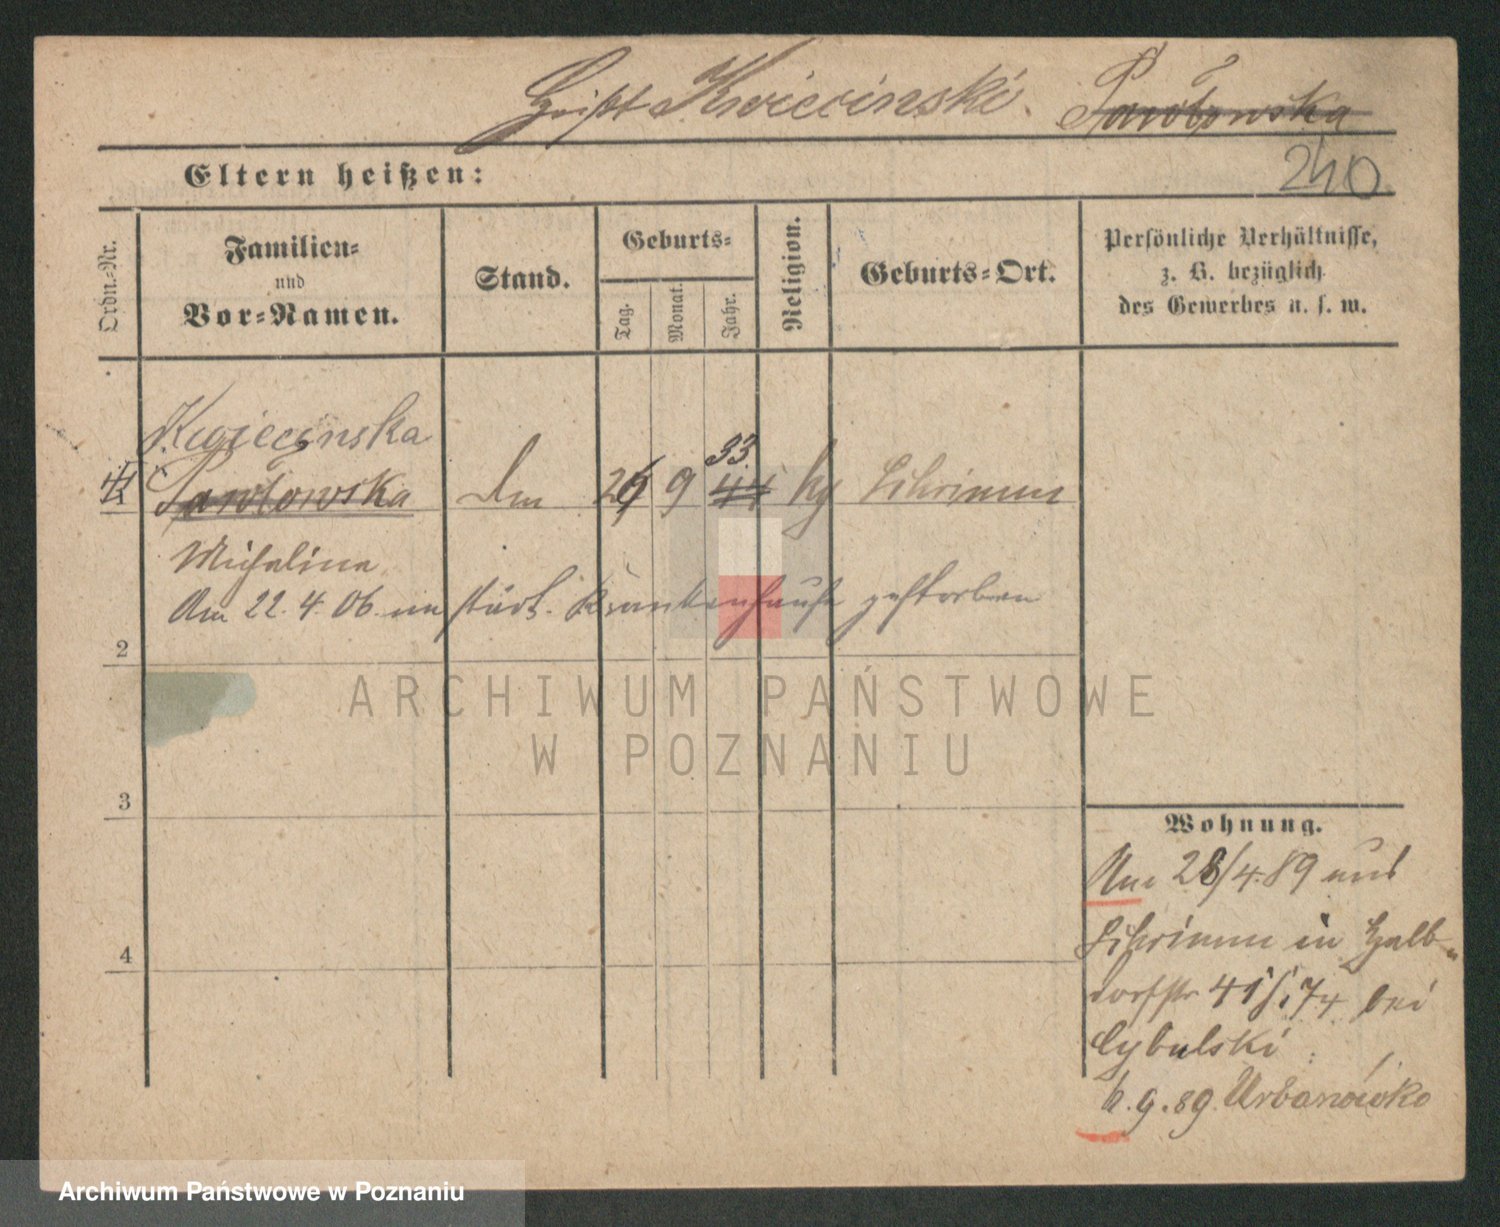 heißt Kwiecinski Pawłowska
240
Eltern heißen:
Ordn.-Nr.
Familien-
und
Vor-Namen.
Stand.
Geburts-
Tag.
Monat.
Jahr.
Religion.
Geburts-Ort.
Persönliche Verhältnisse,
z. B. bezüglich
des Gewerbes u. s. w.
Kwiecinska
33.
Pawłowska 26 9 44 kg Schrimm
Michalina
Am 22. 4. 06. im städt. Krankenhause gestorben
2
3
4
Wohnung.
Am 28/4.89 aus
Schrimm in Halb-
dorfstr 41 bei
Cybulski
9.89. Urbanowko
ARCHIWUM PAŃSTWOWE
W POZNANIU
Archiwum Państwowe w Poznaniu